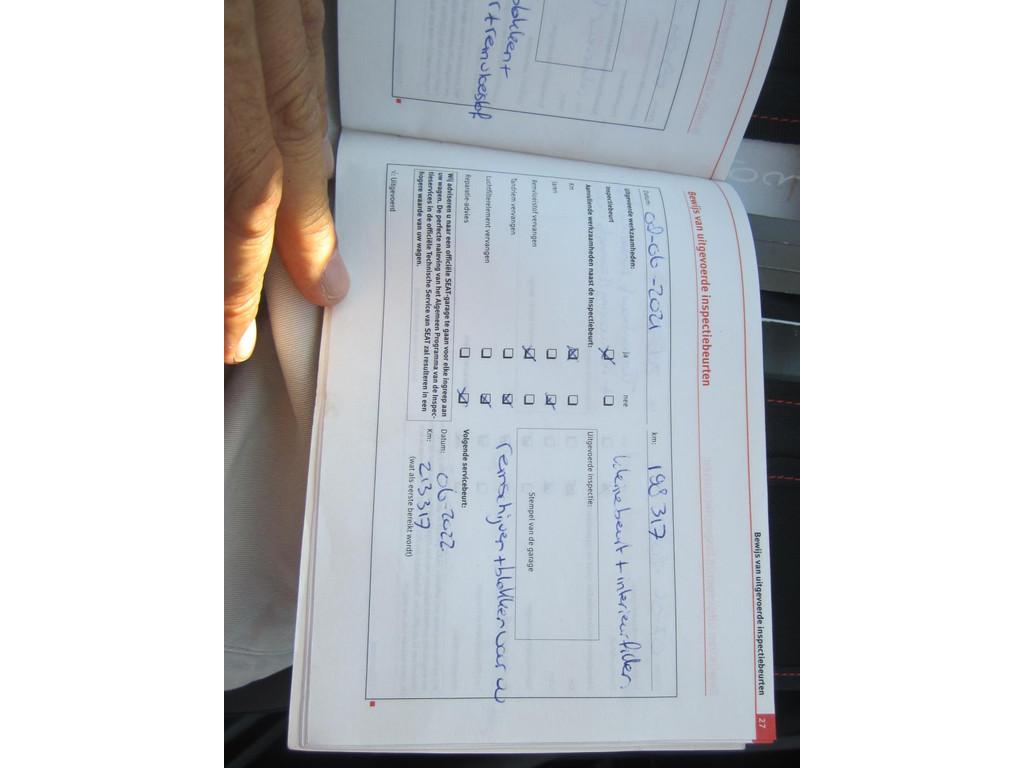 Bewijs van uitgevoerde inspectiebeurten
27
Bewijs van uitgevoerde inspectiebeurten
Datum: 08-06-2021
km: 198 317
uitgevoerde werkzaamheden:
ja
nee
Inspectiebeurt
Aanvullende werkzaamheden naast de Inspectiebeurt:
Km
Jaren
Remvloeistof vervangen
Tandriem vervangen
Luchtfilterelement vervangen
Reparatie-advies
Wij adviseren u naar een officiële SEAT-garage te gaan voor elke ingreep aan
uw wagen. De perfecte naleving van het Algemeen Programma van de Inspec-
tieservices in de officiële Technische Service van SEAT zal resulteren in een
hogere waarde van uw wagen.
√: Uitgevoerd
Uitgevoerde inspectie:
kleine beurt + interieurfilter.
Stempel van de garage
remschijven + blokken voor
Volgende servicebeurt:
Datum: 06-2022
Km: 213 317
(wat als eerste bereikt wordt)
blokken +